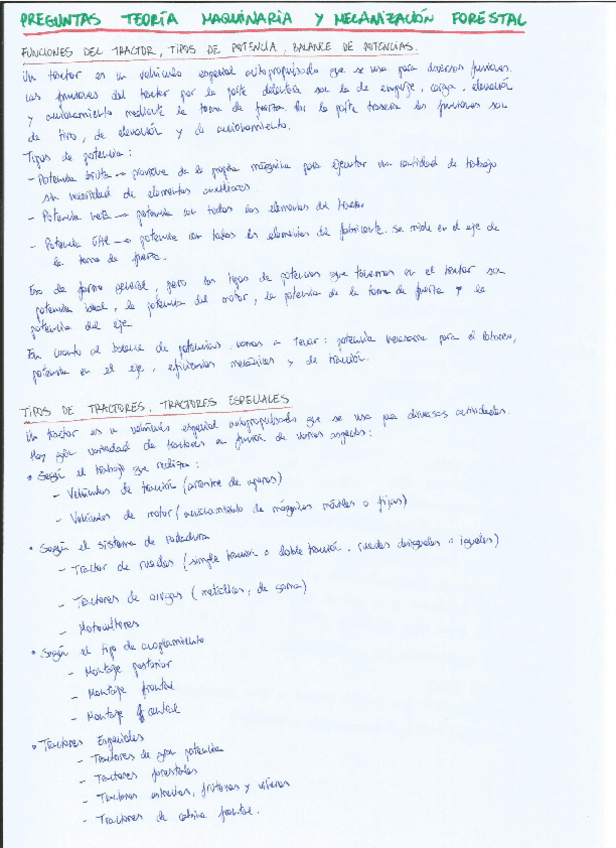 PREGUNTAS TEORÍA MAQUINARIA Y MECANIZACIÓN FORESTAL
FUNCIONES DEL TRACTOR, TIPOS DE POTENCIA, BALANCE DE POTENCIAS.
Un tractor es un vehículo especial autopropulsado que se usa para diversas funciones.
Las funciones del tractor por la parte delantera son la de empuje, carga, elevación
y accionamiento mediante la toma de fuerza. Por la parte trasera las funciones son
de tiro, de elevación y de accionamiento.
Tipos de potencia:
- Potencia bruta → proviene de la propia máquina para ejecutar una cantidad de trabajo
sin necesidad de elementos auxiliares
- Potencia neta → potencia con todos los elementos del tractor
- Potencia útil → potencia con todos los elementos del fabricante. Se mide en el eje de
la toma de fuerza.
Eso de forma general, pero los tipos de potencias que tenemos en el tractor son
potencia ideal, la potencia del motor, la potencia de la toma de fuerza y la
potencia del eje
En cuanto al balance de potencias vamos a tener: potencia necesaria para el
potencia en el eje, eficiencias mecánicas y de tracción.
TIPOS DE TRACTORES, TRACTORES ESPECIALES
Un tractor es un vehículo especial autopropulsado que se usa para diversas actividades.
Hay gran variedad de tractores en función de varios aspectos:
• Según el trabajo que realiza:
- Vehículos de tracción (arrastre de aperos)
- Vehículos de motor (accionamiento de máquinas móviles o fijas)
• Según el sistema de rodadura
- Tractor de ruedas (simple tracción o doble tracción, ruedas desiguales o iguales)
- Tractores de orugas (metálicas, de goma)
- Motocultores
• Según el tipo de acoplamiento
- Montaje posterior
- Montaje frontal
- Montaje central
• Tractores Especiales
- Tractores de gran potencia
- Tractores forestales
- Tractores estrechos, fruteros y viñeros
- Tractores de cabina frontal.